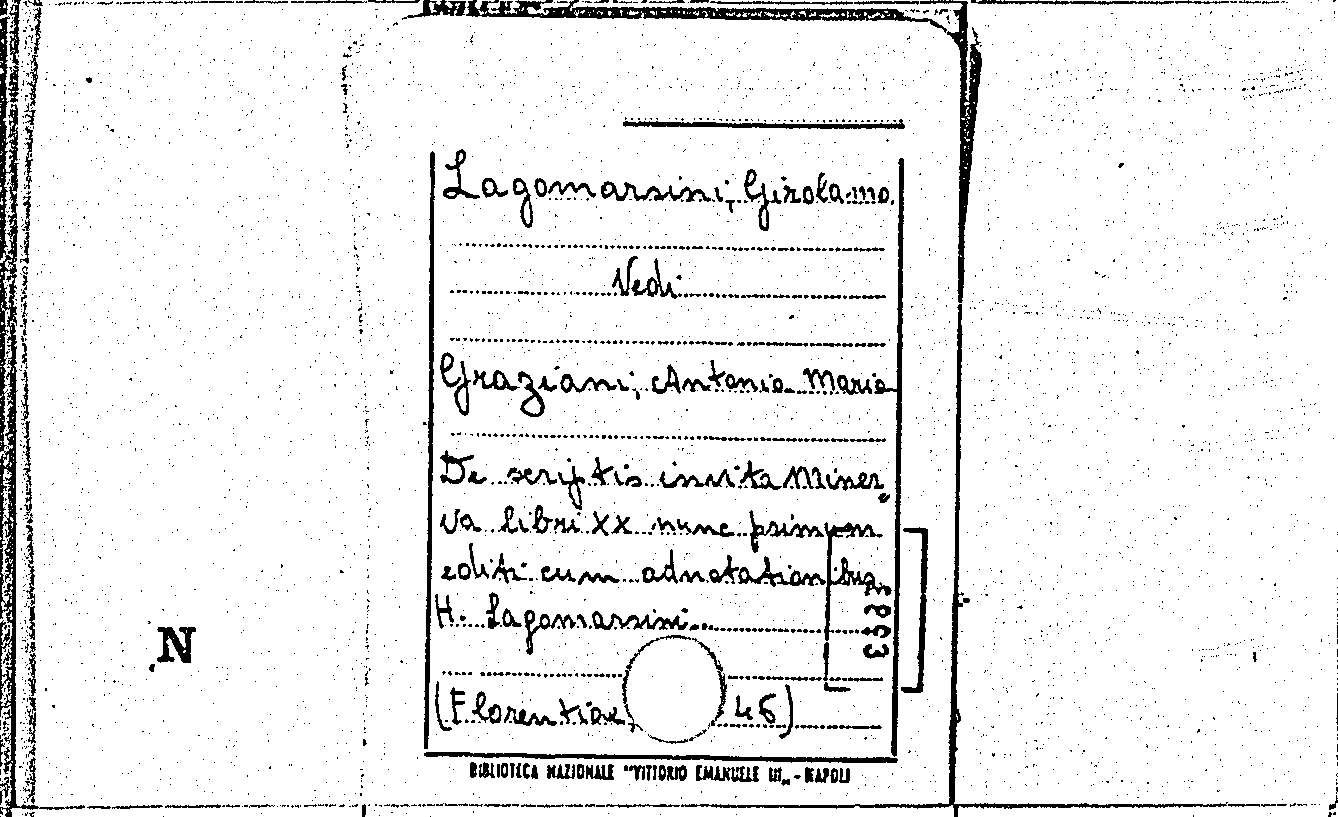 Lagomarsini, Girolamo.
Vedi
Graziani, Antonio Maria
De scriptis invita Miner„
va libri XX nunc primum
editi cum adnotationibus
H. Lagomarsini...
(Florentiae, 46)
BIBLIOTECA NAZIONALE "VITTORIO EMANUELE III„ - NAPOLI
N